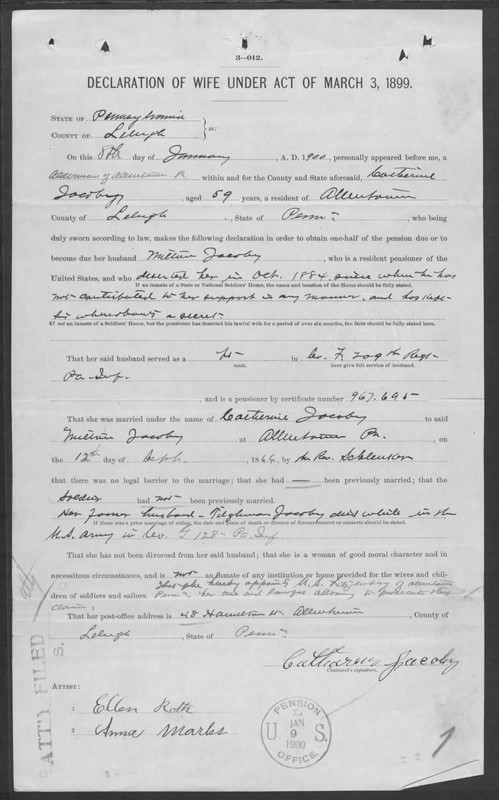 3—012.
DECLARATION OF WIFE UNDER ACT OF MARCH 3, 1899.
STATE OF Pennsylvania
COUNTY OF Lehigh } ss:
On this 8th day of January, A. D. 1900, personally appeared before me, a
Alderman of Allentown Pa within and for the County and State aforesaid, Catherine
Jacoby, aged 59 years, a resident of Allentown
County of Lehigh, State of Penn, who being
duly sworn according to law, makes the following declaration in order to obtain one-half of the pension due or to
become due her husband Milton Jacoby, who is a resident pensioner of the
United States, and who deserted her in Oct. 1884, since when he has
If an inmate of a State or National Soldiers' Home, the name and location of the Home should be fully stated.
not contributed to her support in any manner, and has kept
his whereabouts a secret
If not an inmate of a Soldiers' Home, but the pensioner has deserted his lawful wife for a period of over six months, the facts should be fully stated.
That her said husband served as a Pvt in Co. F. 209th Regt
rank. here give full service of husband.
Pa. Inf.
, and is a pensioner by certificate number 967.695
That she was married under the name of Catherine Jacoby to said
Milton Jacoby at Allentown Pa., on
the 12th day of Sept., 1866, by Rev.
that there was no legal barrier to the marriage; that she had been previously married; that the
soldier had not been previously married.
Her former husband Tilghman Jacoby died while in the
If there was a prior marriage of either, the date and place of death or divorce of former consort or consorts should be stated.
U.S. army in Co. G 128 Pa Inf
That she has not been divorced from her said husband; that she is a woman of good moral character and in
necessitous circumstances, and is not an inmate of any institution or home provided for the wives and chil-
dren of soldiers and sailors. that she hereby appoints of Allentown
Penn'a her true and lawful attorney to prosecute this
claim;
That her post-office address is 48 Hamilton St. Allentown, County of
Lehigh, State of Penn
Catharine Jacoby
Claimant's signature.
ATTEST:
Ellen Roth
Anna
PENSION
JAN
9
1900
OFFICE
U S.
ATT'Y FILED
S.
1